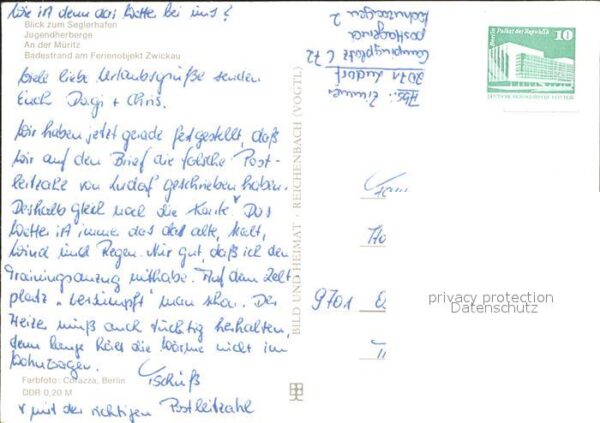 Wie ist denn das Wetter bei uns?
Blick zum Seglerhafen
Jugendherberge
An der Müritz
Badestrand am Ferienobjekt Zwickau
Viele liebe Urlaubsgrüße senden
Euch Dagi + Chris.
Wir haben jetzt gerade festgestellt, daß
wir auf den Brief die falsche Post-
leitzahl von Ludorf geschrieben haben.
Deshalb gleich noch die Karte ∨ Das
Wetter ist immer das alte, kalt,
Wind und Regen. Nur gut, daß ich den
Trainingsanzug mithabe. Auf dem Zelt-
platz „versumpft" man schon. Der
Heizer muß auch tüchtig herhalten,
denn lange hält die Wärme nicht im
Wohnwagen.
Tschüß
Farbfoto: Corazza, Berlin
DDR 0,20 M
∨ mit der richtigen Postleitzahl
BILD UND HEIMAT · REICHENBACH (VOGTL)
Abs.: Zimmer
2071 Ludorf
Campingplatz C 72
postlagernd
Wohnwagen 2
Berlin Palast der Republik
10
DEUTSCHE DEMOKRATISCHE REPUBLIK
9701
privacy protection
Datenschutz